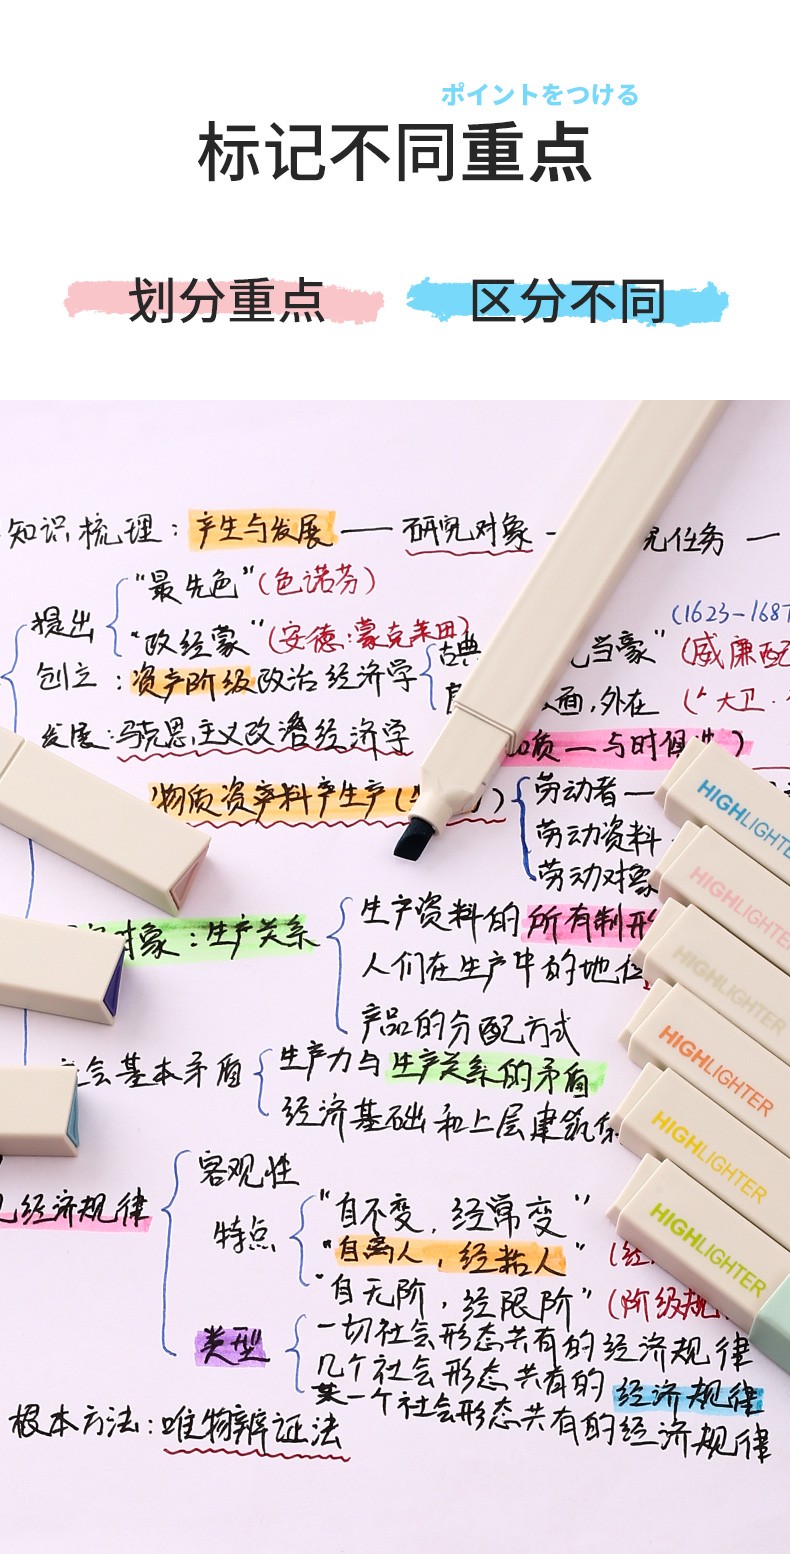 ポイントをつける
标记不同重点
划分重点 区分不同
知识梳理：产生与发展 — 研究对象 - 任务 —
提出 "最先色"(色诺芬)
"政经蒙"(安德:蒙克莱田) (1623-1687
创立：资产阶级政治经济学 古典 当豪" (威廉配
面,外在 (大卫·
发展:马克思主义政治经济学
质—与时俱进)
物质资料产生产( ) 劳动者—
劳动资料
劳动对象
对象：生产关系 生产资料的所有制形
人们在生产中的地位
产品的分配方式
会基本矛盾 生产力与生产关系的矛盾
经济基础和上层建筑
经济规律 客观性
特点 "自不变，经常变"
"自离人，经粘人" (经
"自无阶，经限阶" (阶级规
类型 一切社会形态共有的经济规律
几个社会形态共有的经济规律
某一个社会形态共有的经济规律
根本方法：唯物辨证法
HIGHLIGHTE
HIGHLIGHTE
HIGHLIGHTER
HIGHLIGHTER
HIGHLIGHTER
HIGHLIGHTER